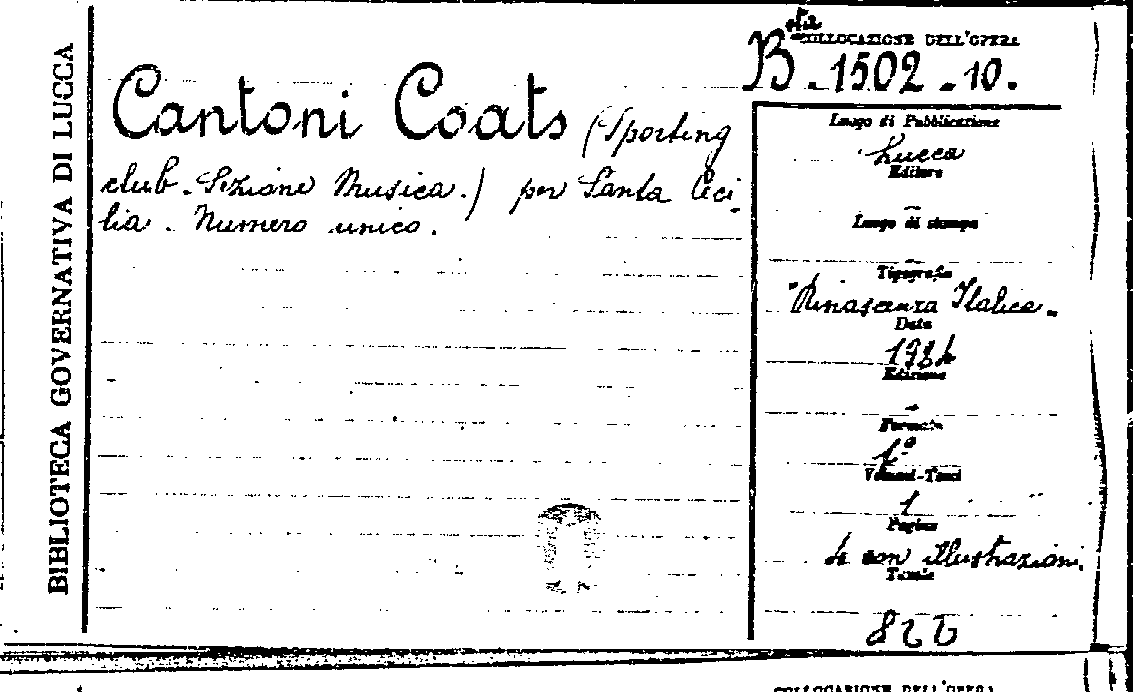 BIBLIOTECA GOVERNATIVA DI LUCCA
Cantoni Coats (Sporting
club. Sezione Musica.) per Santa Ceci-
lia. Numero unico.
COLLOCAZIONE DELL'OPERA
B sta. 1502 - 10.
Luogo di Pubblicazione
Lucca
Editore
–
Luogo di stampa
–
Tipografia
Rinascenza Italica.
Data
1924
Edizione
–
Formato
Volumi-Tomi
1
Pagine
4 con illustrazioni.
Tavole
COLLOCAZIONE DELL'OPERA